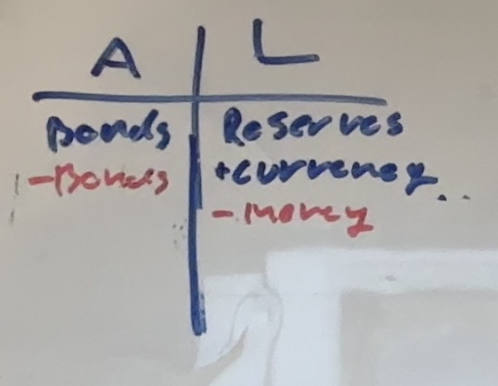 A L
Bonds Reserves
-Bonds +currency..
-Money